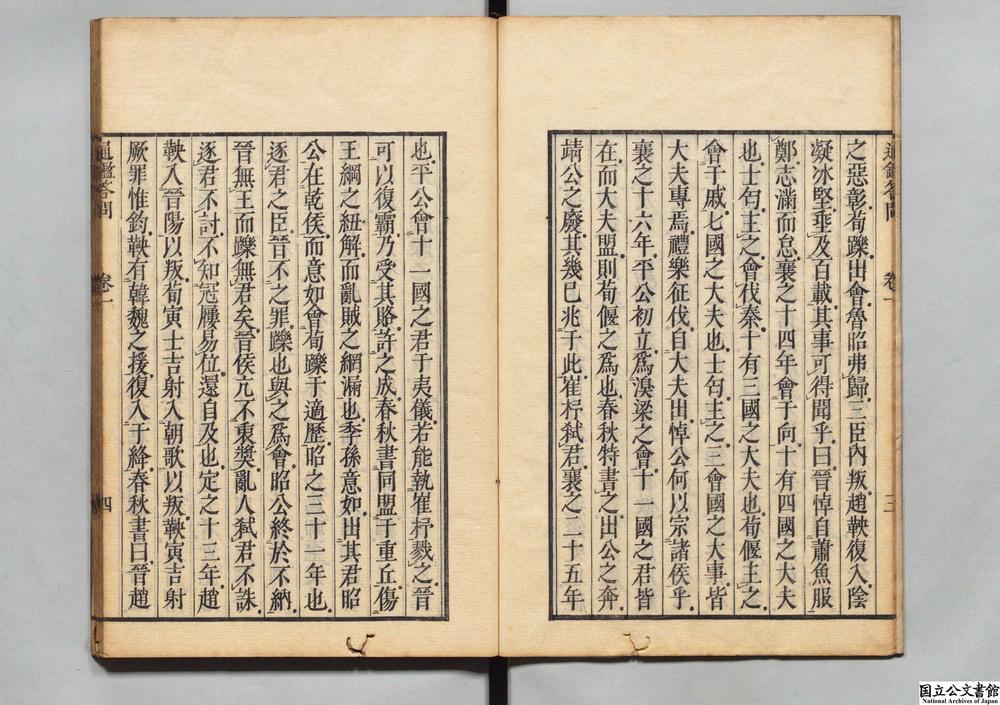 通鑑答問
卷一
三
之惡彰荀躒出會魯昭弗歸三臣內叛趙鞅復入陰
凝冰堅垂及百載其事可得聞乎曰晉悼自蕭魚服
鄭志滿而怠襄之十四年會于向十有四國之大夫
也士匄主之會伐秦十有三國之大夫也荀偃主之
會于戚七國之大夫也士匄主之三會國之大事皆
大夫專焉禮樂征伐自大夫出悼公何以宗諸侯乎
襄之十六年平公初立為溴梁之會十一國之君皆
在而大夫盟則荀偃之為也春秋特書之出公之奔
靖公之廢其幾已兆于此崔杼弒君襄之二十五年
也平公會十一國之君于夷儀若能執崔杼戮之晉
可以復霸乃受其賂許之成春秋書同盟于重丘傷
王綱之紐解而亂賊之網漏也季孫意如出其君昭
公在乾侯而意如會荀躒于適歷昭之三十一年也
逐君之臣晉不之罪躒也與之為會昭公終於不納
晉無王而躒無君矣晉侯亢不衷獎亂人弒君不誅
逐君不討不知冠屨易位還自及也定之十三年趙
鞅入晉陽以叛荀寅士吉射入朝歌以叛鞅寅吉射
厥罪惟鈞鞅有韓魏之援復入于絳春秋書曰晉趙
通鑑答問
卷一
四
国立公文書館
National Archives of Japan